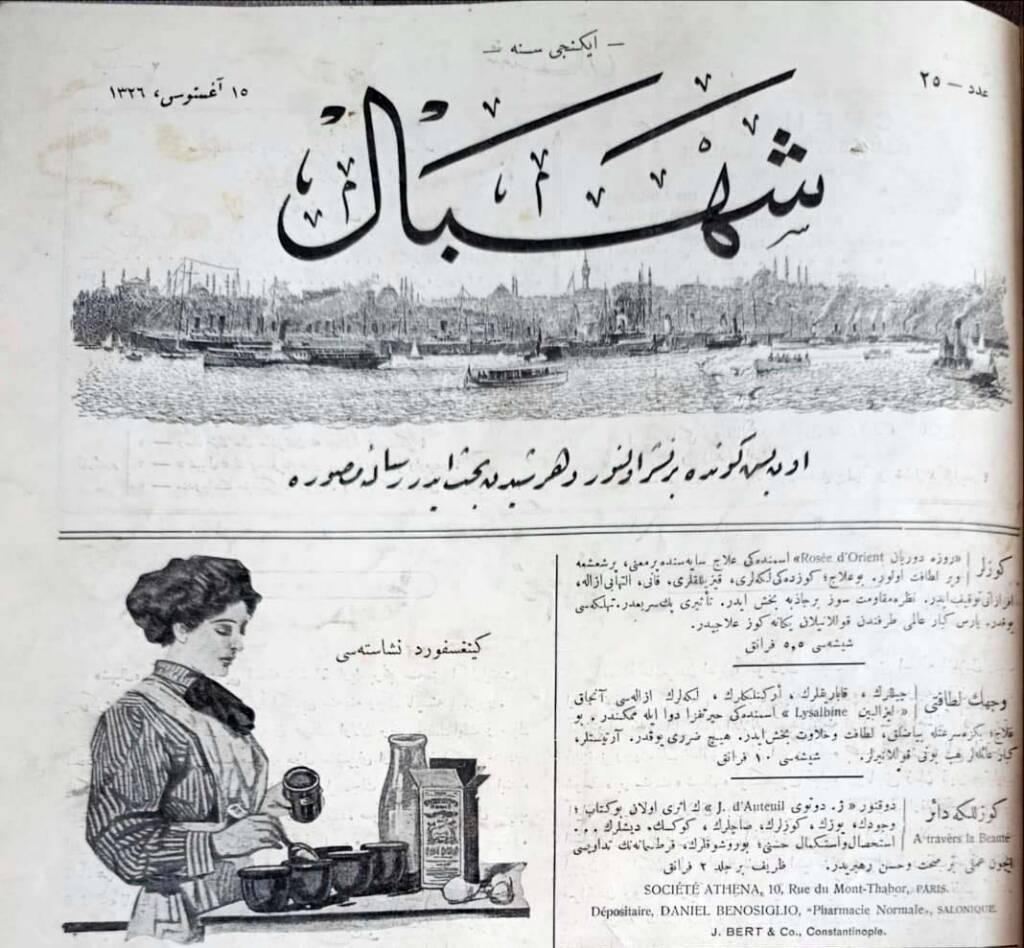 — ایكنجی سنه —
عدد — ٢٥
١٥ آغستوس، ١٣٢٦
شهبال
اون بش كونده بر نشر اولنور و هر شیدن بحث ایدر رسالهٔ مصوره
كینغسفورد نشاسته‌سی
كوزلر
«روزه دوریان Rosée d'Orient» اسمنده‌كی علاج سایه‌سنده برمعنی، پرشعشعه
وپر لطافت اولور. بوعلاج؛ كوزده‌كی لكه‌لری، قیزیللقلری، قانی، التهابی ازاله،
توقیف ایدر. نظره مقاومت سوز برجاذبه بخش ایدر. تأثیری پك سریعدر. تهلكه‌سی
یوقدر. پارس كبار عالمی طرفندن قوللانیلان یكانه كوز علاجیدر.
شیشه‌سی ٥,٥ فرانق
وجهك لطافتی
چیللرك، قابارغلرك، لكه‌لرك ازاله‌سی آنجاق
« لیزالبین Lysalbine » اسمنده‌كی حیرتفزا دوا ایله ممكندر. بو
علاج؛ بكزه سرعتله بیاضلق، لطافت وحلاوت بخش ایدر. هیچ ضرری یوقدر. آرتیستلر،
كبار عائله‌لر هب بونی قوللانیرلر. شیشه‌سی ١٠ فرانق
كوزللكه دائر
A travèrs la Beauté
دوقتور « ژ. دوتوی J. d'Auteuil » ك اثری اولان بوكتاب؛
وجودك، یوزك، كوزلرك، صاچلرك، كوكسك، دیشلرك ...
استحصال واستكمال حسنی، بوروشوقلرك، تداویسی
ایچون عملی بر صحت وحسن رهبریدر. ظریف بر جلد ٢ فرانق
SOCIÉTÉ ATHENA, 10, Rue du Mont-Thabor, PARIS.
Dépositaire, DANIEL BENOSIGLIO, «Pharmacie Normale», SALONIQUE
J. BERT & Co., Constantinople.